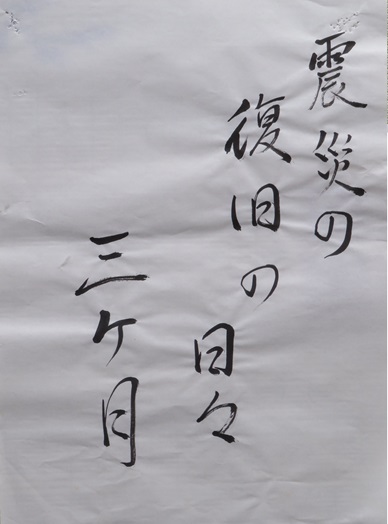 震災の
復旧の日々
三ケ月